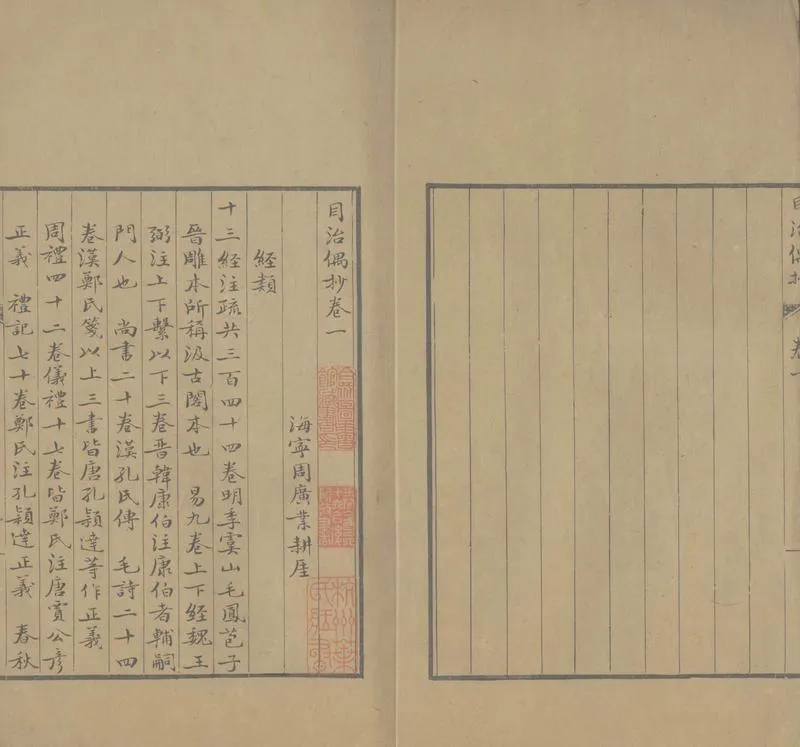 目治偶抄卷一
目治偶抄卷一
海寧周廣業耕厓
經類
十三經注疏共三百四十四卷明季虞山毛鳳苞子
晉雕本所稱汲古閣本也 易九卷上下經魏王
弼注上下繫以下三卷晋韓康伯注康伯者輔嗣
門人也 尚書二十卷漢孔氏傳 毛詩二十四
卷漢鄭氏箋以上三書皆唐孔頴達等作正義
周禮四十二卷儀禮十七卷皆鄭氏注唐賈公彦
正義 禮記七十卷鄭氏注孔頴達正義 春秋